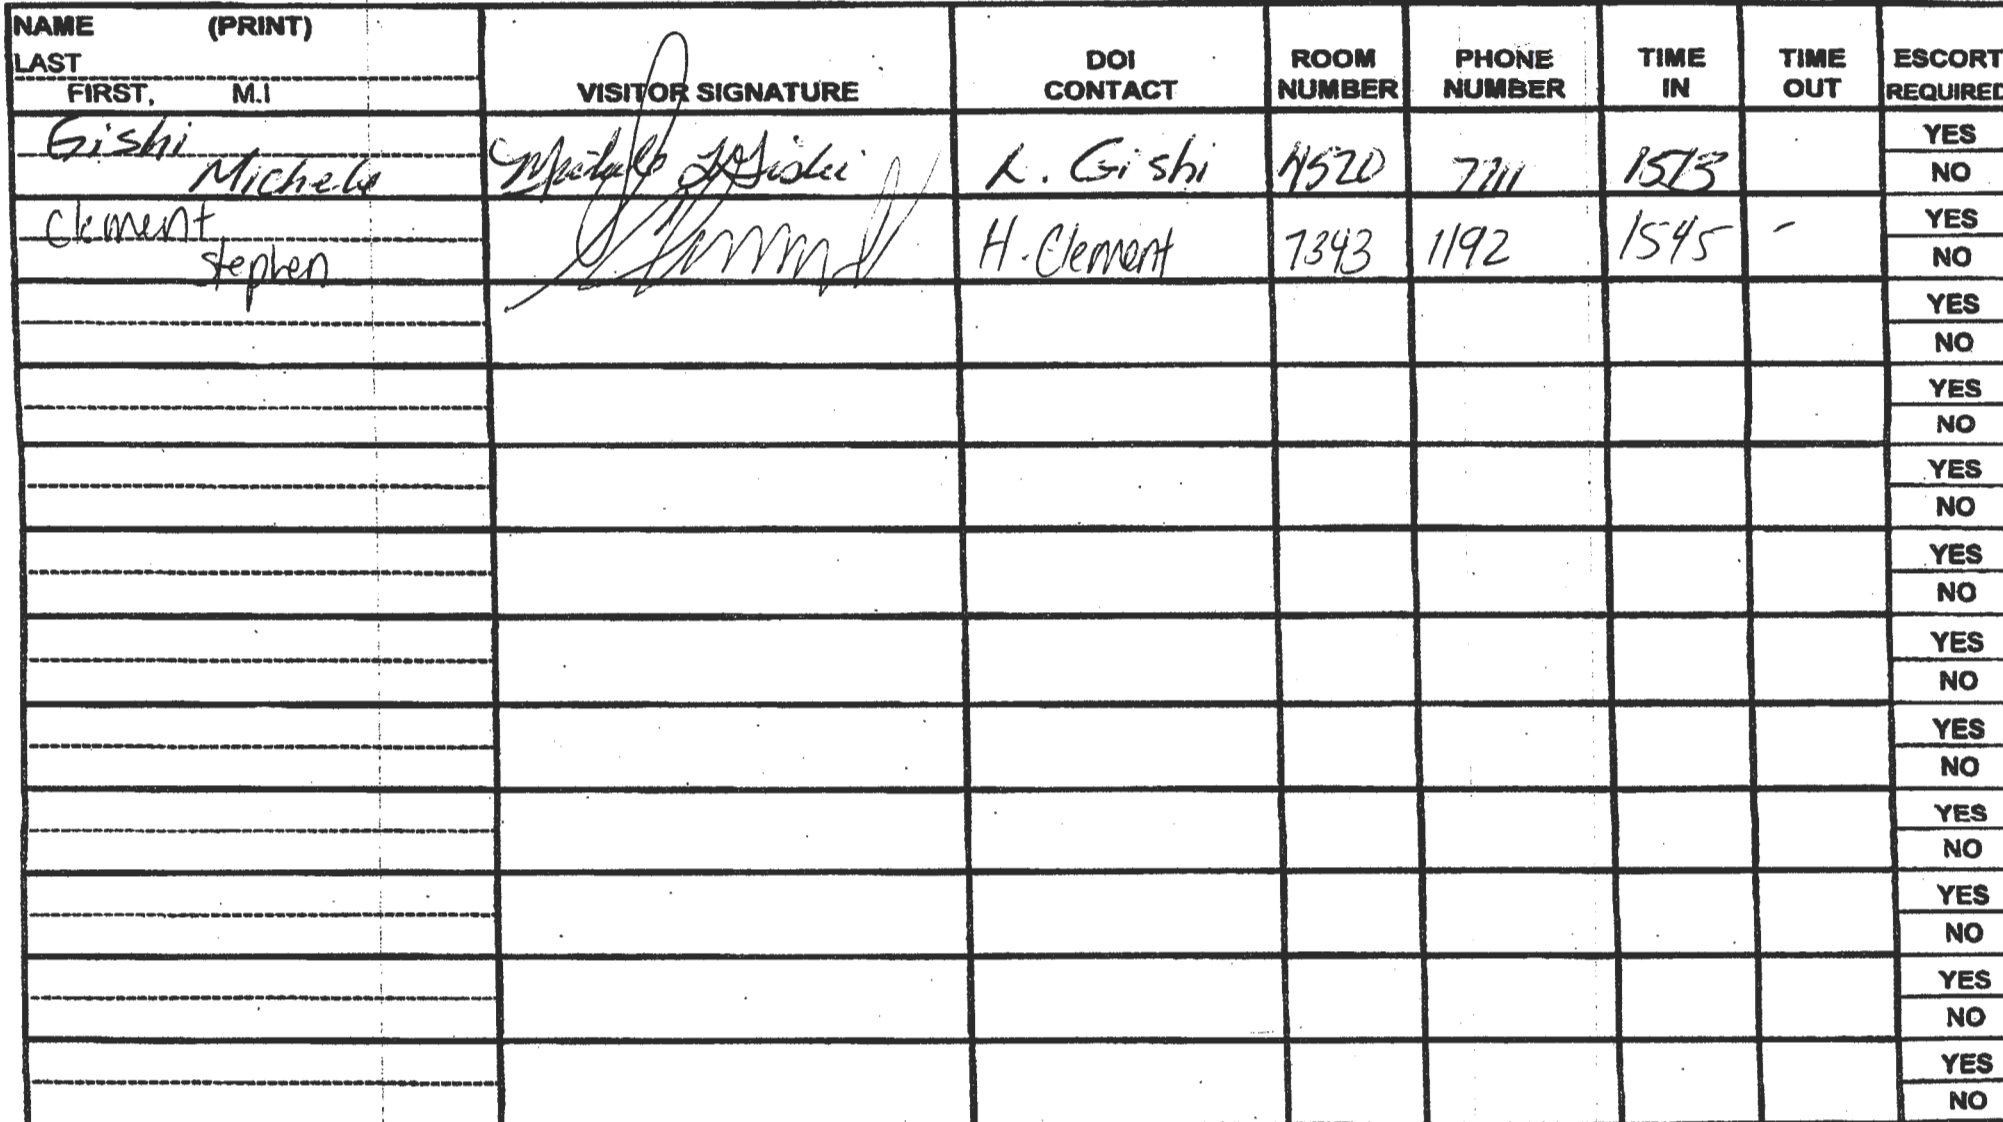 NAME (PRINT)
LAST
FIRST, M.I
VISITOR SIGNATURE
DOI CONTACT
ROOM NUMBER
PHONE NUMBER
TIME IN
TIME OUT
ESCORT REQUIRED
Gishi
Michele
R. Gishi 4520 7711 1513
YES
NO
Clement
Stephen
H. Clement 7343 1192 1545 -
YES
NO
YES
NO
YES
NO
YES
NO
YES
NO
YES
NO
YES
NO
YES
NO
YES
NO
YES
NO
YES
NO